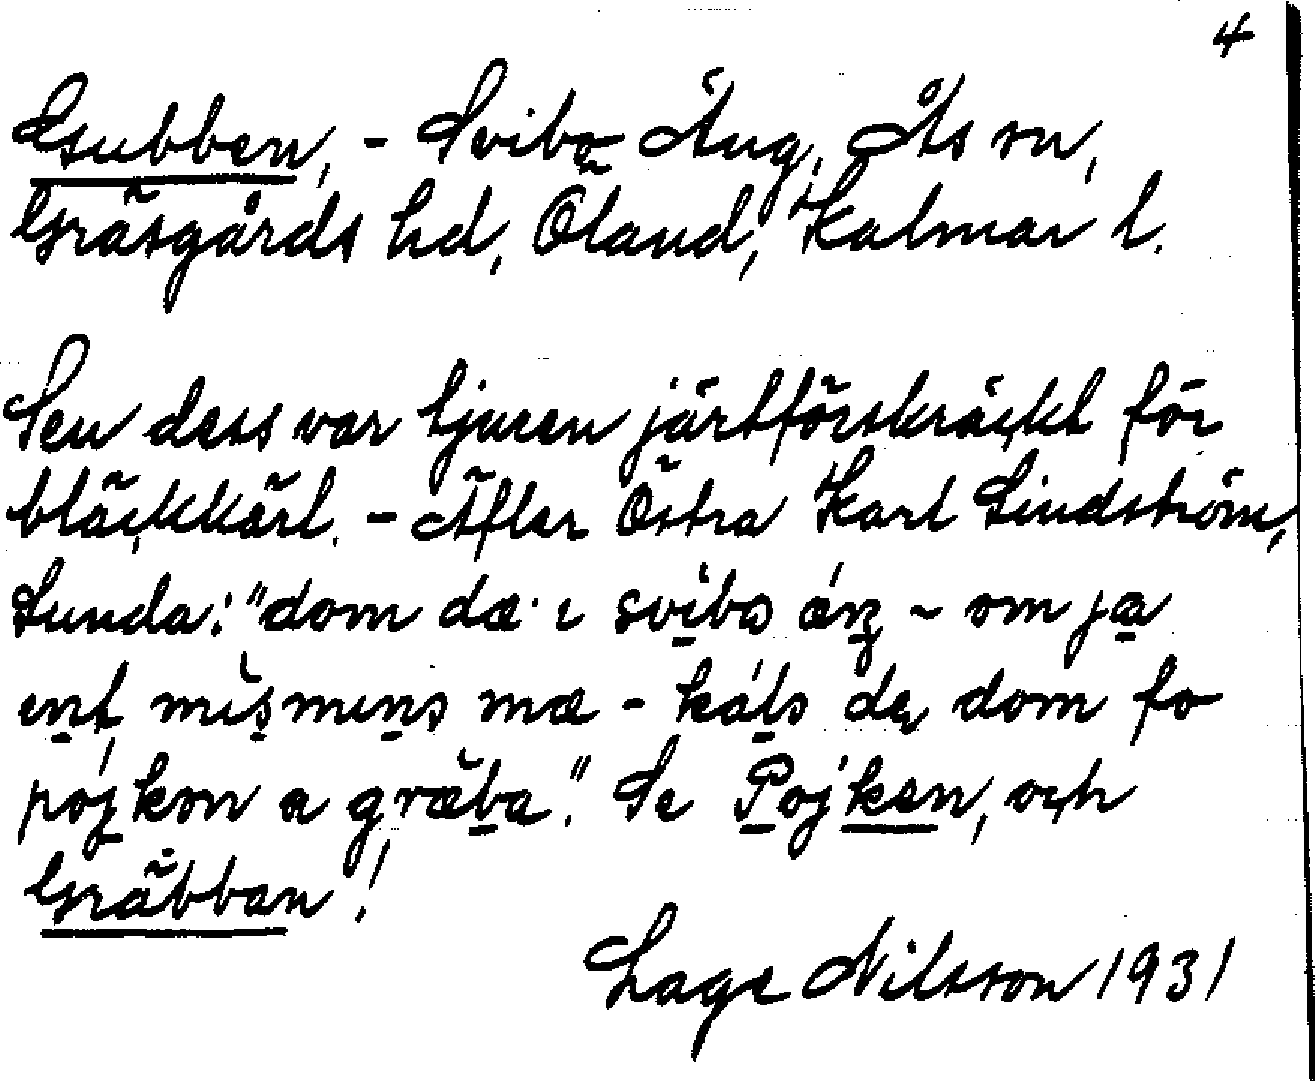 4
Gubben, - Svibo Äng, Ås sn,
Gräsgårds hd, Öland, Kalmar l.
Sen dess var tjuren järtförskräckt för
bläckkärl. - Äfter Östra Karl Lindström,
Sunda: "dom dæ· ɩ svibo æŋ - om jæ
ɩnt mismɩns mæ - kals de dom fo
pojkɷn a græba." Se Pojken, och
Gräbban!
Lage Nilsson 1931